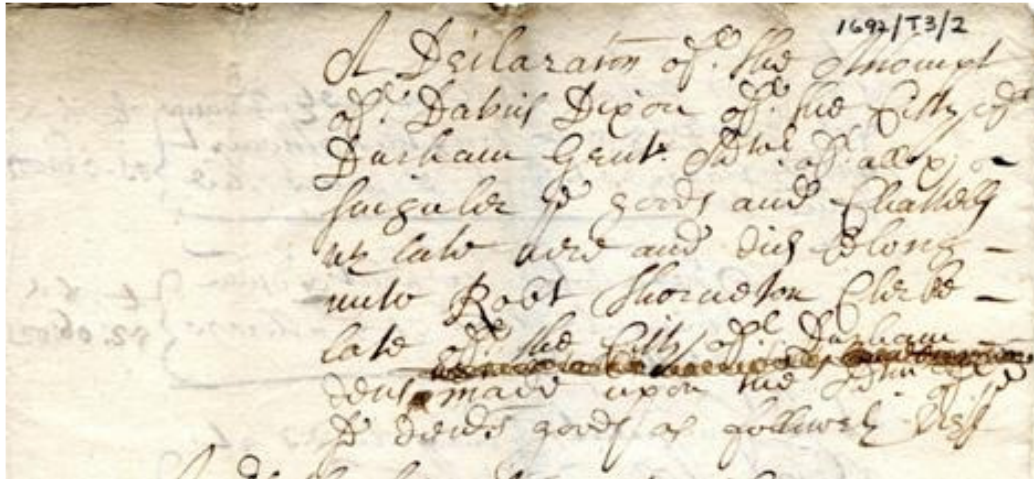 1692/T3/2
A Declaraton of the Accompt
of David Dixon of the Citty of
Durham Gent. Admr of all &
singuler ye goods and Chattells
wch late were and did belong
unto Robt Thorneton Clerke
late of the Citty of Durham
made upon the
ye goods as followeth